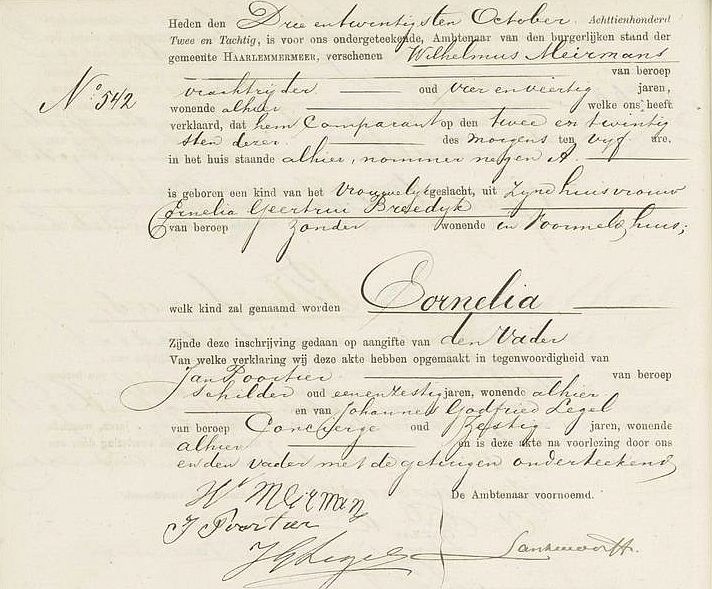 Heden den Drie en twintigsten October Achttienhonderd
Twee en Tachtig, is voor ons ondergeteekende, Ambtenaar van den burgerlijken stand der
gemeente HAARLEMMERMEER, verschenen Wilhelmus Meirmans
van beroep
No 542
vrachtrijder oud vier en veertig jaren,
wonende alhier welke ons heeft
verklaard, dat hem Comparant op den twee en twintig
sten dezer des morgens ten vijf ure,
in het huis staande alhier, nommer negen A.
is geboren een kind van het vrouwelijk geslacht, uit zijne huisvrouw
Cornelia Geertrui Breedyk
van beroep zonder wonende in voormeld huis;
welk kind zal genaamd worden Cornelia
Zijnde deze inschrijving gedaan op aangifte van den vader
Van welke verklaring wij deze akte hebben opgemaakt in tegenwoordigheid van
Jan Poortier van beroep
schilder oud eenenzestig jaren, wonende alhier
en van Johannes Godfried Legel
van beroep Concierge oud zestig jaren, wonende
alhier en is deze akte na voorlezing door ons
en den vader met de getuigen onderteekend
De Ambtenaar voornoemd.
W. Meirman
J Poortier
J G Legel